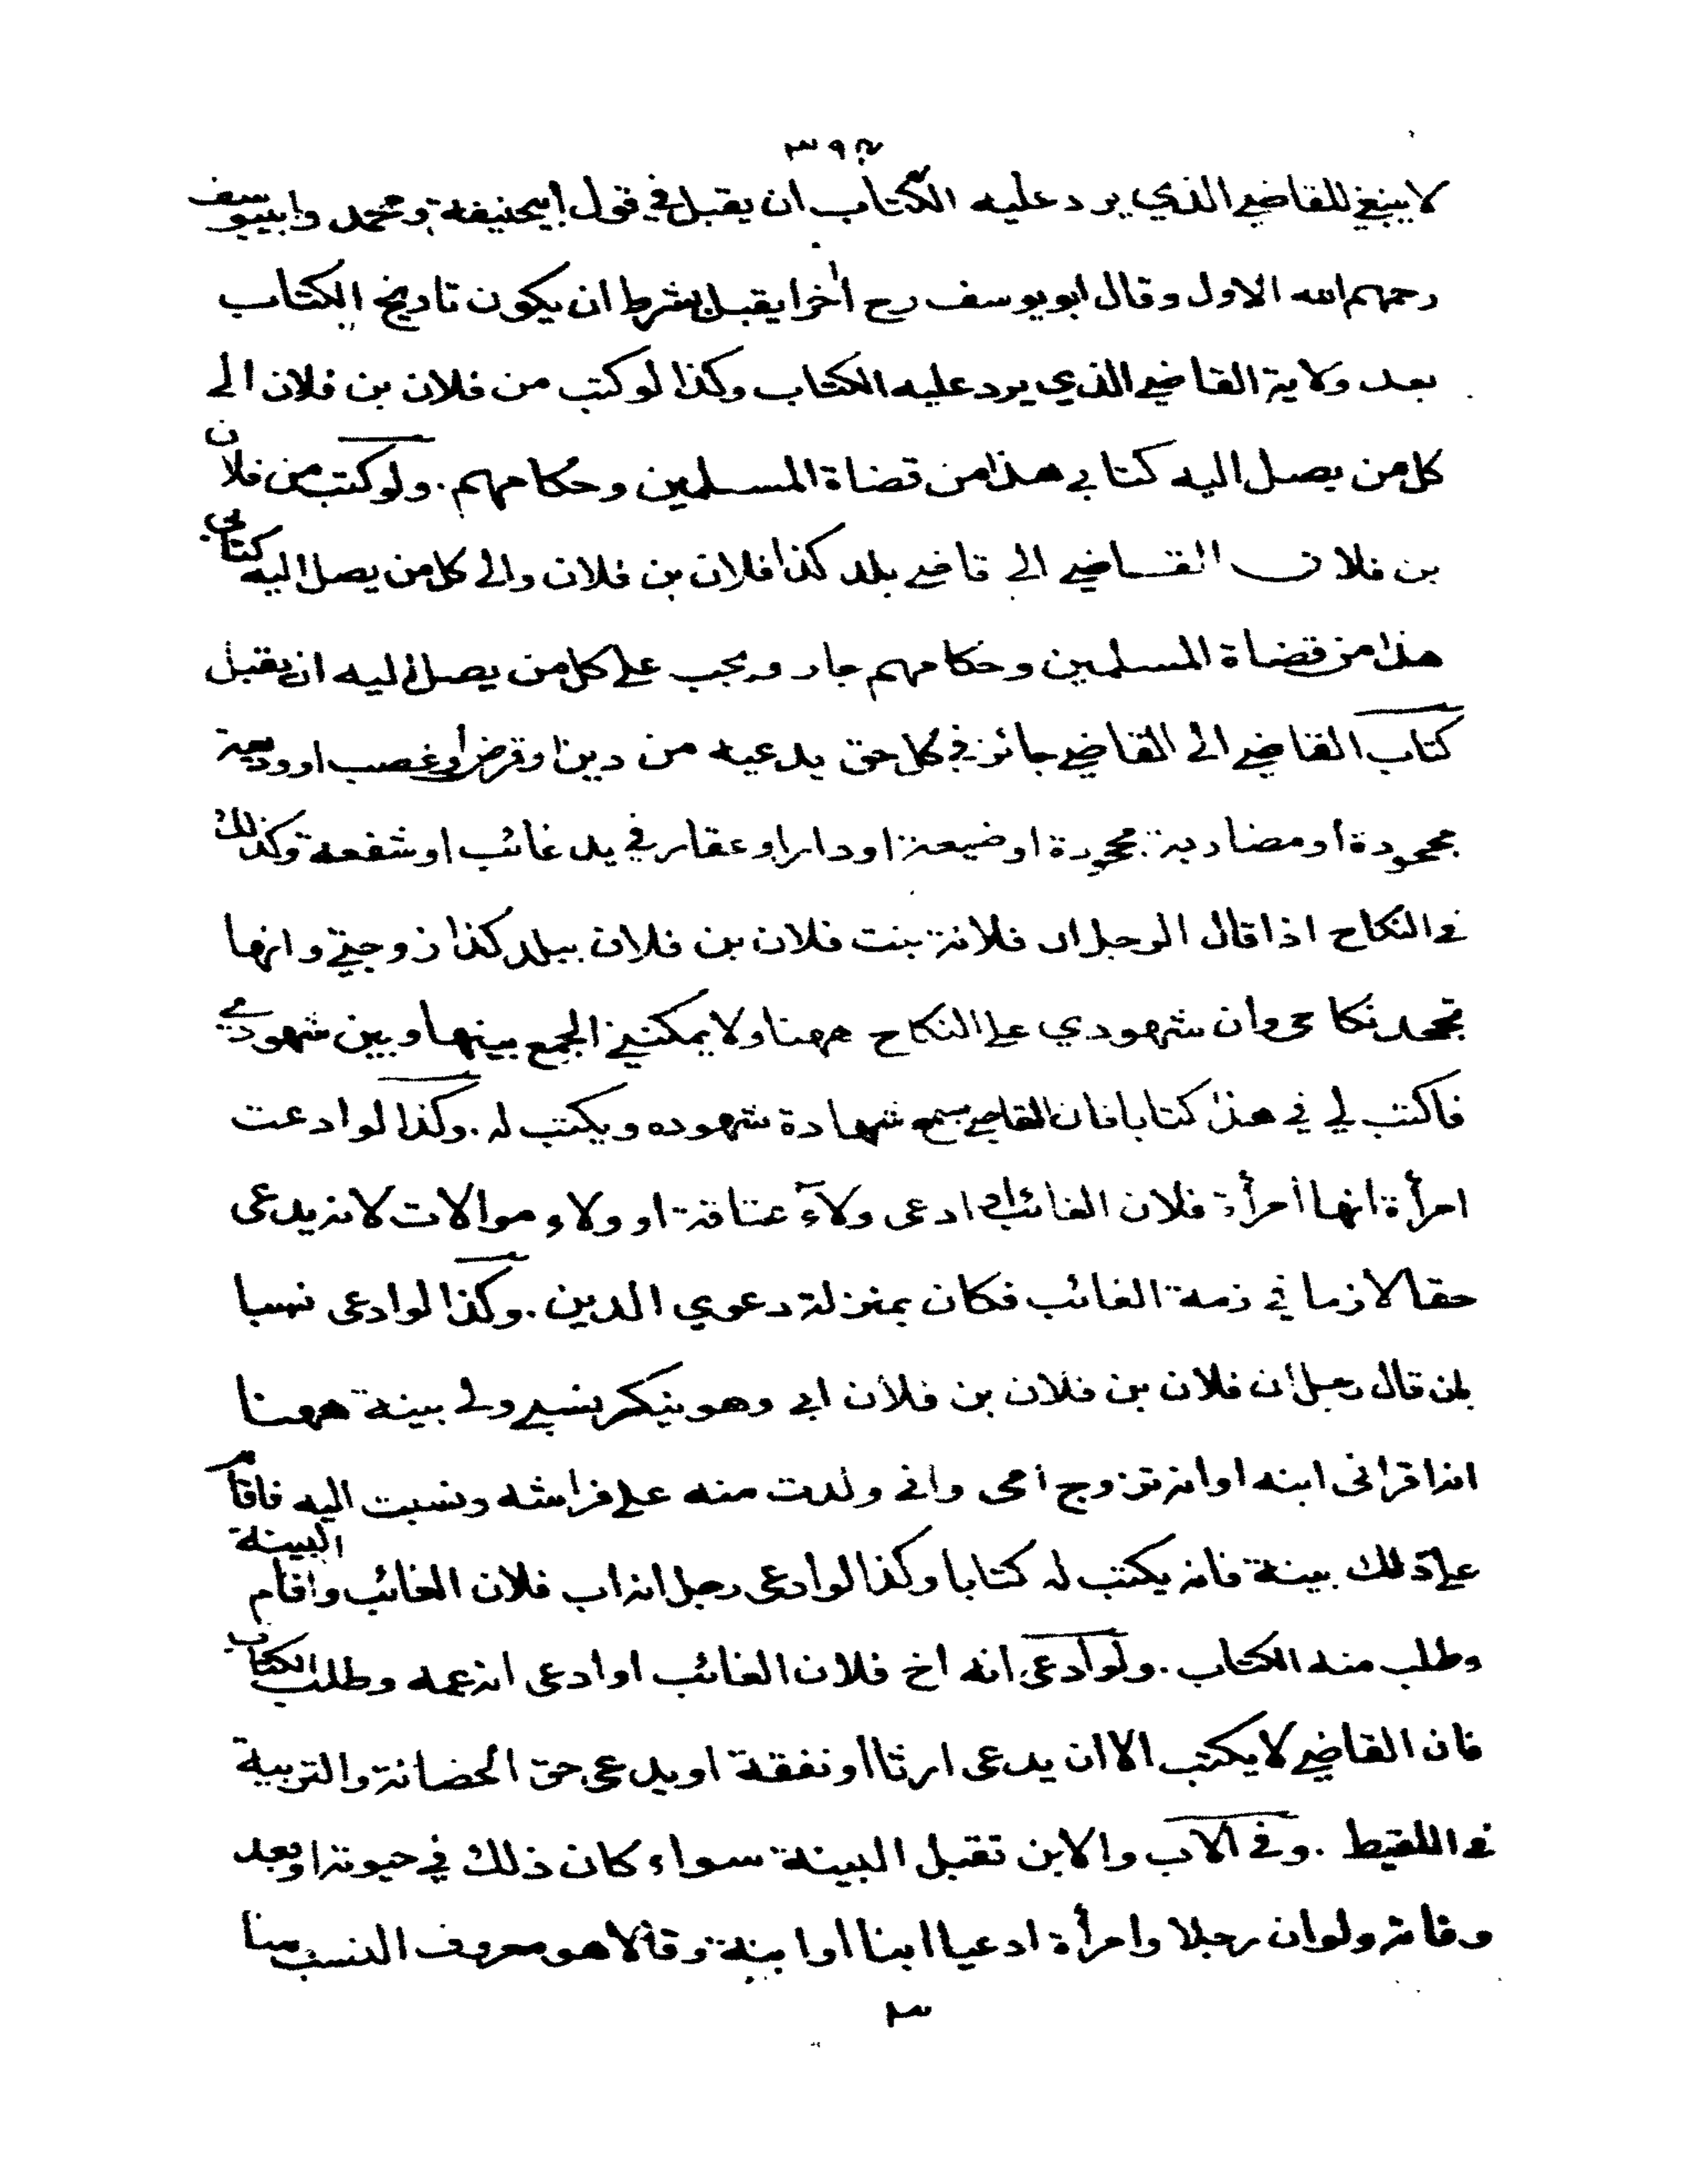 ٣٩٢
لا ينبغي للقاضي الذي يرد عليه الكتاب ان يقبل في قول ابيحنيفة ومحمد وابييوسف
رحمهم الله الاول وقال ابو يوسف رح اٰخرا يقبل بشرط ان يكون تاريخ الكتاب
بعد ولاية القاضي الذي يرد عليه الكتاب وكذا لو كتب من فلان بن فلان الى
كل من يصل اليه كتابي هذا من قضاة المسلمين وحكامهم . ولو كتب من فلان
بن فلان القاضي الى قاضي بلد كذا فلان بن فلان والى كل من يصل اليه كتابي
هذا من قضاة المسلمين وحكامهم جاز ويجب على كل من يصل اليه ان يقبل
كتاب القاضي الى القاضي جائز في كل حق يدعيه من دين او قرض او غصب او وديعة
مجحودة او مضاربة مجحودة او ضيعة او دار او عقار في يد غائب او شفعة وكذلك
في النكاح اذا قال الرجل ان فلانة بنت فلان بن فلان ببلد كذا زوجتي وانها
تجحد نكاحي وان شهودي على النكاح ههنا ولا يمكنني الجمع بينها وبين شهودي
فاكتب لي في هذا كتابا فان القاضي يسمع شهادة شهوده ويكتب له . وكذا لو ادعت
امرأة انها امرأة فلان الغائب او ادعى ولآء عتاقة او ولاء موالات لانه يدعى
حقا لازما في ذمة الغائب فكان بمنزلة دعوي الدين . وكذا لو ادعى نسبا
بان قال رجل ان فلان بن فلان بن فلان ابي وهو ينكر نسبي ولي بينة ههنا
انه اقر اني ابنه او انه تزوج امى وانى ولدت منه على فراشه ونسبت اليه فاقام
على ذلك بينة فانه يكتب له كتابا وكذا لو ادعى رجل انه اب فلان الغائب واقام البينة
وطلب منه الكتاب . ولو ادعى انه اخ فلان الغائب او ادعى انه عمه وطلب الكتاب
فان القاضي لا يكتب الا ان يدعى ارثا او نفقة او يدعى حق الحضانة والتربية
في اللقيط . وفي الاب والابن تقبل البينة سواء كان ذلك في حيوته او بعد
وفاته ولو ان رجلا وامرأة ادعيا ابنا او ابنة وقالا هو معروف النسب منا